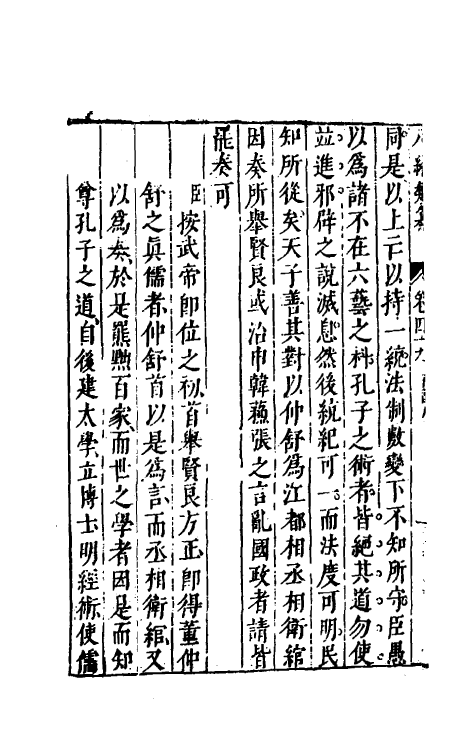 八編類纂 卷四九
同是以上亡以持一統法制數變下不知所守臣愚
以爲諸不在六藝之科孔子之術者皆絕其道勿使
竝進邪辟之說滅息然後統紀可一而法度可明民
知所從矣天子善其對以仲舒爲江都相丞相衛綰
因奏所舉賢良或治申韓蘇張之言亂國政者請皆
罷奏可
臣按武帝卽位之初首舉賢良方正卽得董仲
舒之眞儒者仲舒首以是爲言而丞相衛綰又
以爲奏於是罷黜百家而世之學者因是而知
尊孔子之道自後建太學立博士明經術使儒